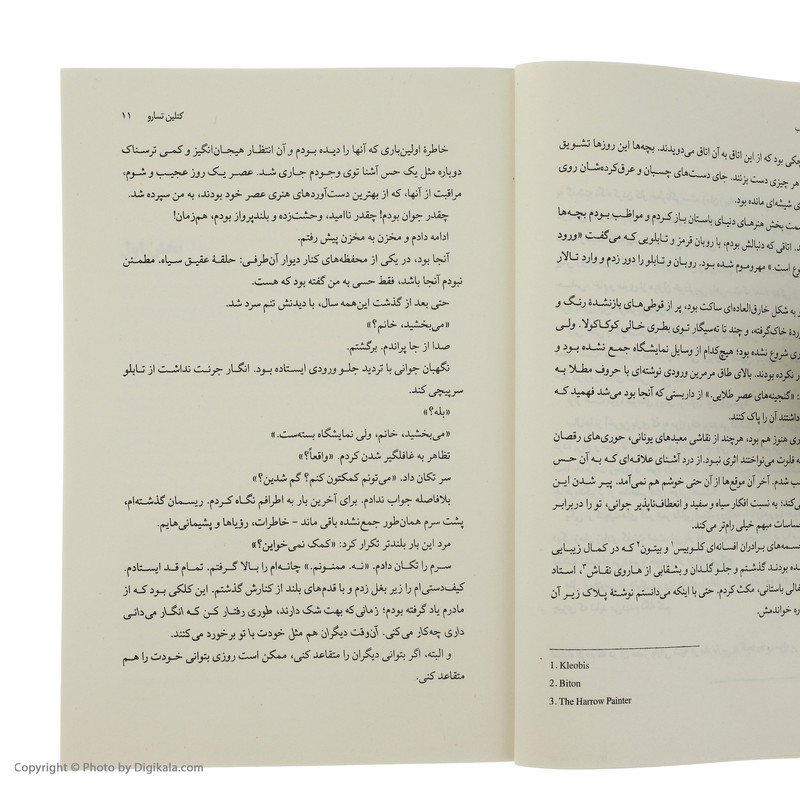 چکی بود که از این اتاق به آن اتاق می‌دویدند. بچه‌ها این روزها تشویق
هر چیزی دست بزنند. جای دست‌های چسبان و عرق‌کرده‌شان روی
ی شیشه‌ای مانده بود.
مت بخش هنرهای دنیای باستان باز کردم و مواظب بودم بچه‌ها
د. اتاقی که دنبالش بودم، با روبان قرمز و تابلویی که می‌گفت «ورود
وع است.» مهروموم شده بود. روبان و تابلو را دور زدم و وارد تالار
و به شکل خارق‌العاده‌ای ساکت بود، پر از قوطی‌های بازنشدهٔ رنگ و
ردهٔ خاک‌گرفته، و چند تا ته‌سیگار توی بطری خالی کوکاکولا. ولی
ری شروع نشده بود؛ هیچ‌کدام از وسایل نمایشگاه جمع نشده بود و
ر نکرده بودند. بالای طاق مرمرین ورودی نوشته‌ای با حروف مطلا به
: «گنجینه‌های عصر طلایی.» از داربستی که آنجا بود می‌شد فهمید که
داشتند آن را پاک کنند.
ری هنوز هم بود، هرچند از نقاشی معبدهای یونانی، حوری‌های رقصان
ه فلوت می‌نواختند اثری نبود. از درد آشنای علاقه‌ای که به آن حس
ب شدم. آخر آن موقع‌ها از آن حتی خوشم هم نمی‌آمد. پیر شدن این
کند؛ به نسبت افکار سیاه و سفید و انعطاف‌ناپذیر جوانی، تو را دربرابر
حساسات مبهم خیلی رام‌تر می‌کند.
جسمه‌های برادران افسانه‌ای کلوبیس۱ و بیتون۲ که در کمال زیبایی
ده بودند گذشتم و جلو گلدان و بشقابی از هاروی نقاش۳، استاد
فالی باستانی، مکث کردم. حتی با اینکه می‌دانستم نوشتهٔ پلاک زیر آن
ره خواندمش.
1. Kleobis
2. Biton
3. The Harrow Painter
کتلین تسارو ۱۱
خاطرهٔ اولین‌باری که آنها را دیده بودم و آن انتظار هیجان‌انگیز و کمی ترسناک
دوباره مثل یک حس آشنا توی وجودم جاری شد. عصر یک روز عجیب و شوم،
مراقبت از آنها، که از بهترین دست‌آوردهای هنری عصر خود بودند، به من سپرده شد.
چقدر جوان بودم! چقدر ناامید، وحشت‌زده و بلندپرواز بودم، هم‌زمان!
ادامه دادم و مخزن به مخزن پیش رفتم.
آنجا بود، در یکی از محفظه‌های کنار دیوار آن‌طرفی: حلقهٔ عقیق سیاه. مطمئن
نبودم آنجا باشد، فقط حسی به من گفته بود که هست.
حتی بعد از گذشت این‌همه سال، با دیدنش تنم سرد شد.
«می‌بخشید، خانم؟»
صدا از جا پراندم. برگشتم.
نگهبان جوانی با تردید جلو ورودی ایستاده بود. انگار جرئت نداشت از تابلو
سرپیچی کند.
«بله؟»
«می‌بخشید، خانم، ولی نمایشگاه بسته‌ست.»
تظاهر به غافلگیر شدن کردم. «واقعاً؟»
سر تکان داد. «می‌تونم کمکتون کنم؟ گم شدین؟»
بلافاصله جواب ندادم. برای آخرین بار به اطرافم نگاه کردم. ریسمان گذشته‌ام،
پشت سرم همان‌طور جمع‌نشده باقی ماند - خاطرات، رؤیاها و پشیمانی‌هایم.
مرد این بار بلندتر تکرار کرد: «کمک نمی‌خواین؟»
سرم را تکان دادم. «نه. ممنونم.» چانه‌ام را بالا گرفتم. تمام قد ایستادم.
کیف‌دستی‌ام را زیر بغل زدم و با قدم‌های بلند از کنارش گذشتم. این کلکی بود که از
مادرم یاد گرفته بودم؛ زمانی‌که بهت شک دارند، طوری رفتار کن که انگار می‌دانی
داری چه‌کار می‌کنی. آن‌وقت دیگران هم مثل خودت با تو برخورد می‌کنند.
و البته، اگر بتوانی دیگران را متقاعد کنی، ممکن است روزی بتوانی خودت را هم
متقاعد کنی.
Copyright © Photo by Digikala.com